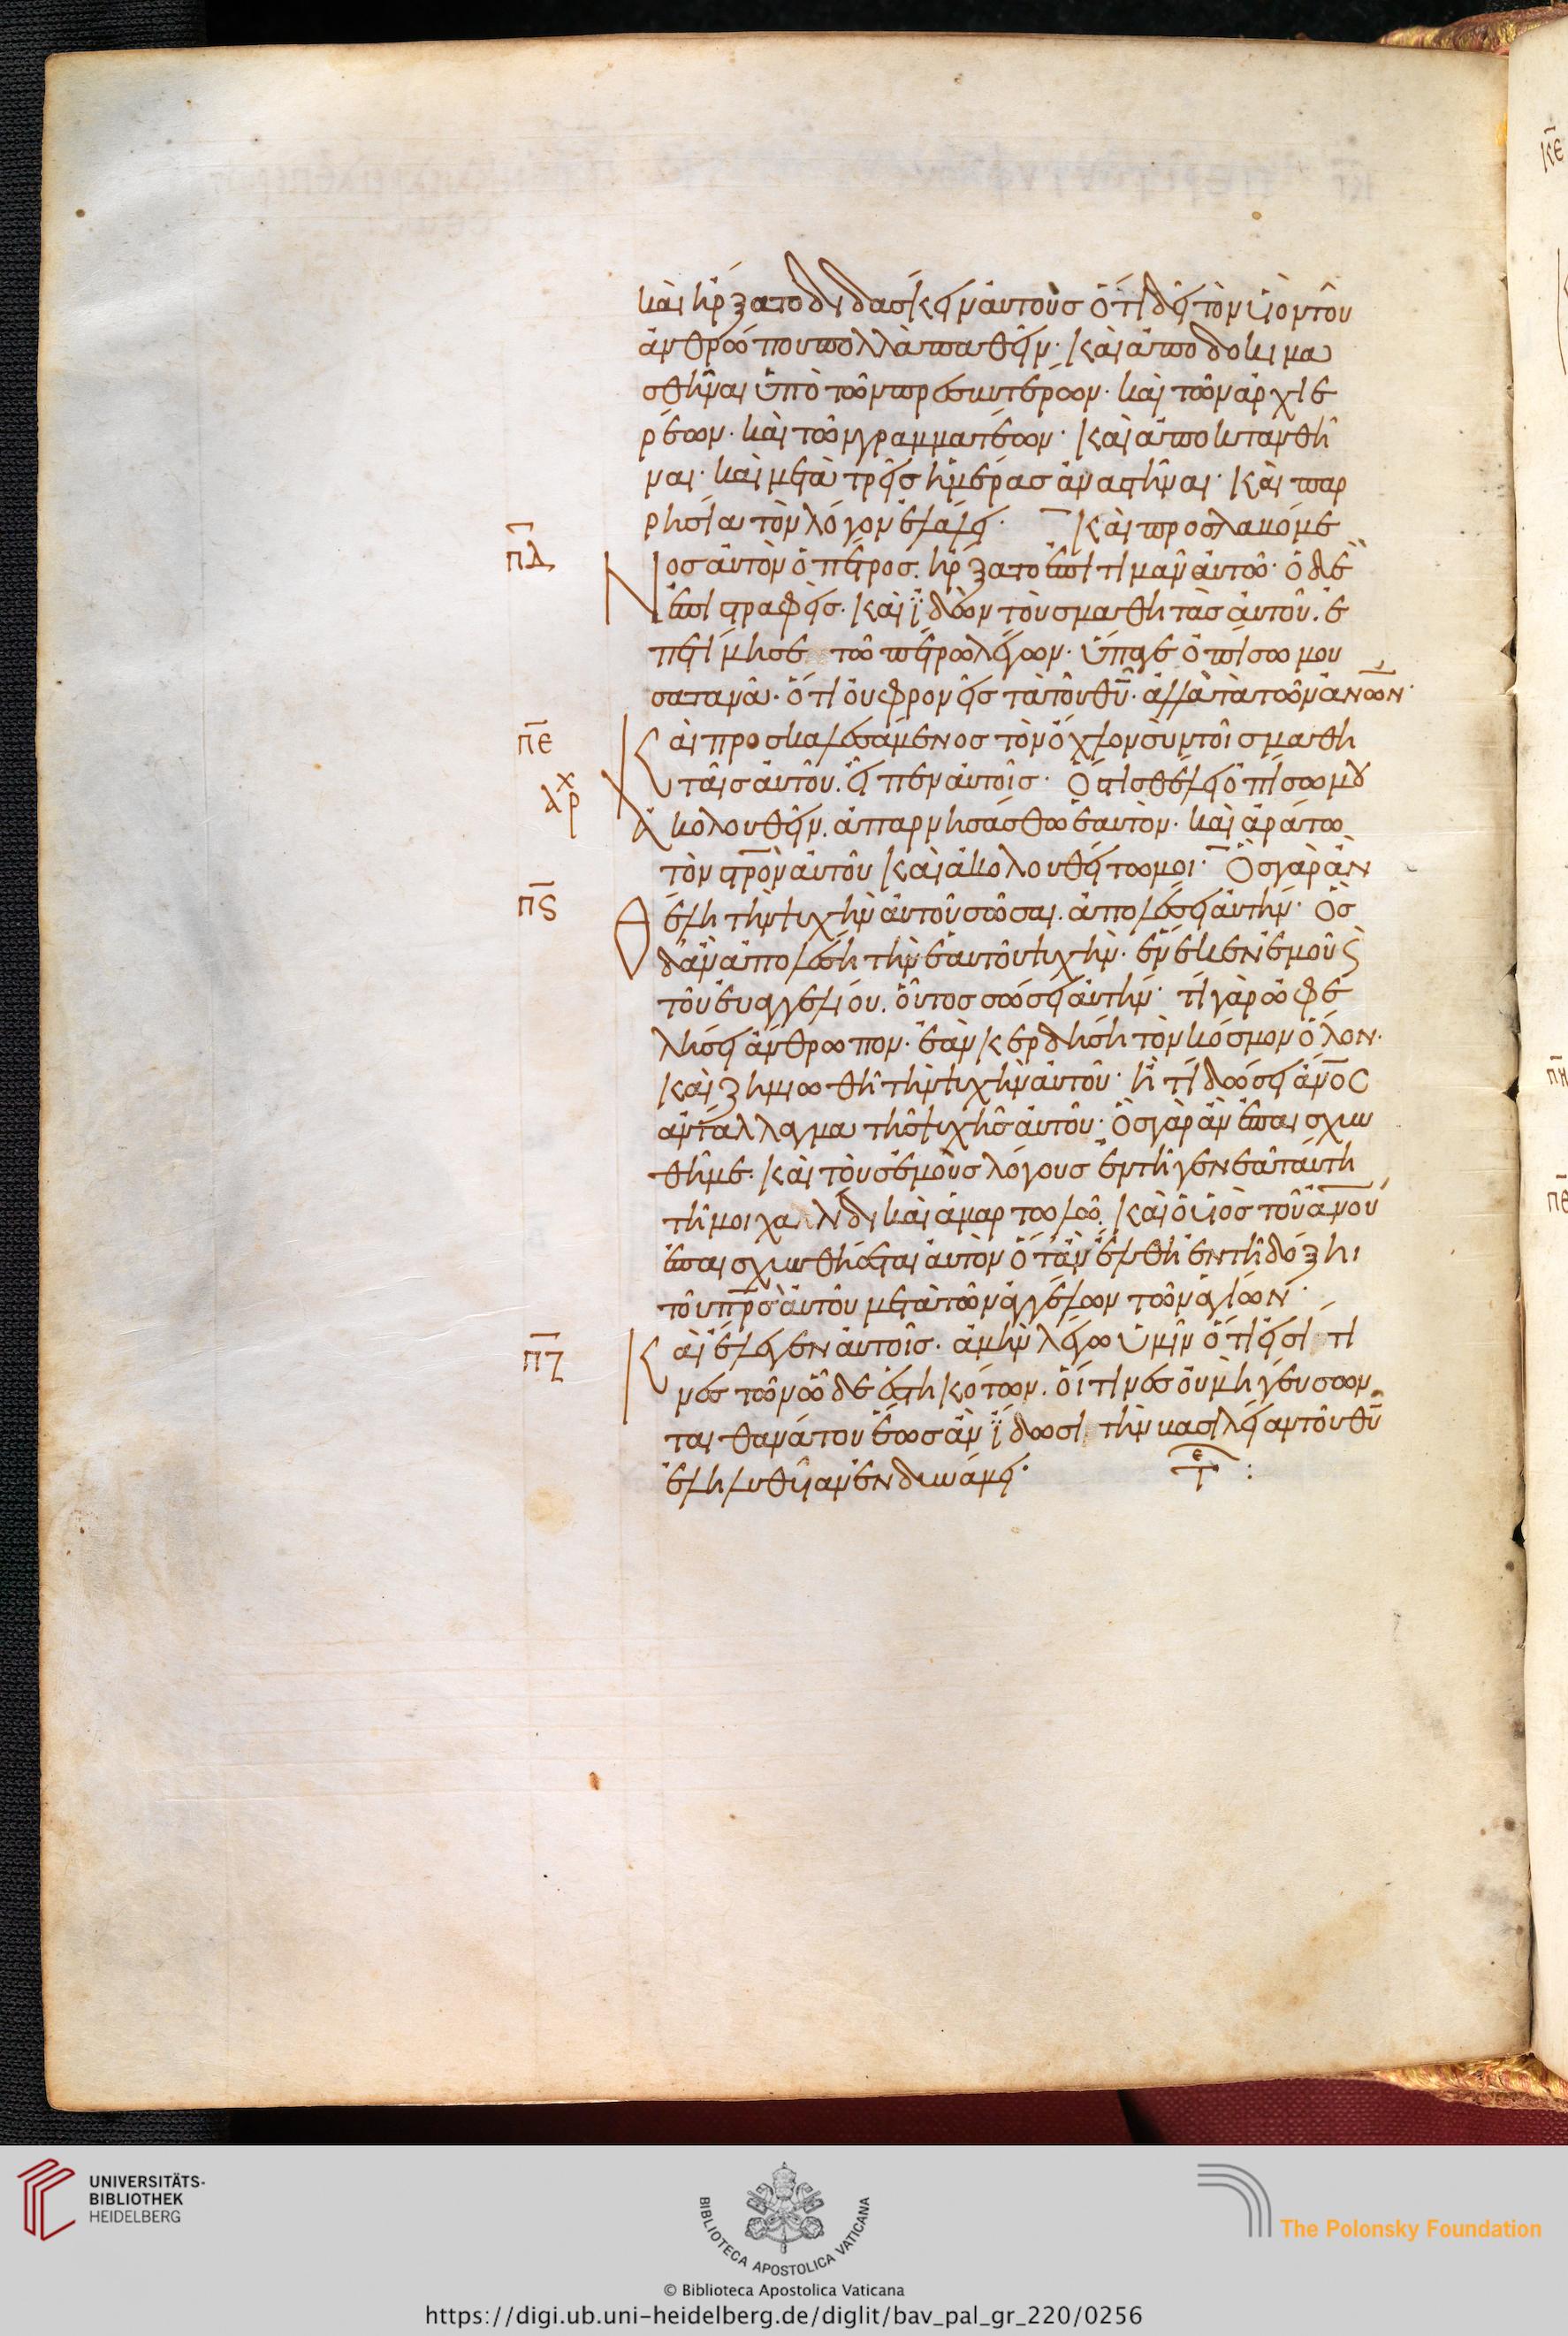 καὶ ἤρξατο διδάσκειν αὐτοὺς ὅτι δεῖ τὸν υἱὸν τοῦ
ἀνθρώπου πολλὰ παθεῖν· καὶ ἀποδοκιμα
σθῆναι ὑπὸ τῶν πρεσβυτέρων· καὶ τῶν ἀρχιε
ρέων· καὶ τῶν γραμματέων· καὶ ἀποκτανθῆ
ναι· καὶ μετὰ τρεῖς ἡμέρας ἀναστῆναι· καὶ παρ
ρησία τὸν λόγον ἐλάλει· καὶ προσλαβόμε
π̅δ̅ Νος αὐτὸν ὁ πέτρος. ἤρξατο ἐπιτιμᾶν αὐτῶ· ὁ δὲ
ἐπιστραφεὶς· καὶ ἰ̈δὼν τοὺς μαθητὰς αὐτοῦ. ἐ
πετίμησε τῶ πέτρω λέγων· ὕπαγε ὀπίσω μου
σατανᾶ· ὅτι οὐ φρονεῖς τὰ τοῦ θ̅υ̅· ἀλλὰ τὰ τῶν ἀ̅ν̅ω̅ν̅·
π̅ε̅ Καὶ προσκαλεσάμενος τὸν ὄχλον σὺν τοῖς μαθη
ταῖς αὐτοῦ. εἶπεν αὐτοῖς· Ὅστις θέλει ὀπίσω μου
αρχ ἀκολουθεῖν. ἀπαρνησάσθω ἑαυτὸν· καὶ ἀράτω
τὸν σ̅ρ̅ο̅ν̅ αὐτοῦ καὶ ἀκολουθείτω μοι· Ὃς γὰρ ἂν
π̅ς̅ Θέλη τὴν ψυχὴν αὐτοῦ σῶσαι. ἀπολέσει αὐτήν· Ὃς
δ' ἂν ἀπολέση τὴν ἑαυτοῦ ψυχὴν· ἕνεκεν ἐμοῦ ϗ
τοῦ εὐαγγελίου. οὗτος σώσει αὐτήν· τί γὰρ ὠφε
λήσει ἄνθρωπον· ἐὰν κερδήση τὸν κόσμον ὅλον·
καὶ ζημιωθῆ τὴν ψυχὴν αὐτοῦ· ἢ τί δώσει ἄ̅ν̅ο̅ς̅
ἀντάλλαγμα τῆς ψυχῆς αὐτοῦ· Ὃς γὰρ ἂν ἐπαισχυν
θῆ με· καὶ τοὺς ἐμοὺς λόγους ἐν τῆ γενεᾶ ταύτη
τῆ μοιχαλίδι καὶ ἁμαρτωλῶ. καὶ ὁ υἱὸς τοῦ ἀ̅ν̅ο̅υ̅
ἐπαισχυνθήσεται αὐτὸν ὅταν ἔλθη ἐν τῆ δόξηι
τοῦ π̅ρ̅ς̅ αὐτοῦ μετὰ τῶν ἀγγέλων τῶν ἁγίων·
π̅ζ̅ Καὶ ἔλεγεν αὐτοῖς· ἀμὴν λέγω ὑμῖν ὅτι εἰσί τι
νές τῶν ὧδε ἑστηκότων. οἵτινες οὐ μὴ γεύσων
ται θανάτου ἕως ἂν ἴ̈δωσι τὴν βασιλείαν τοῦ θ̅υ̅
ἐληλυθυῖαν ἐν δυνάμει· τε :
UNIVERSITÄTS-
BIBLIOTHEK
HEIDELBERG
BIBLIOTECA APOSTOLICA VATICANA
© Biblioteca Apostolica Vaticana
The Polonsky Foundation
https://digi.ub.uni-heidelberg.de/diglit/bav_pal_gr_220/0256